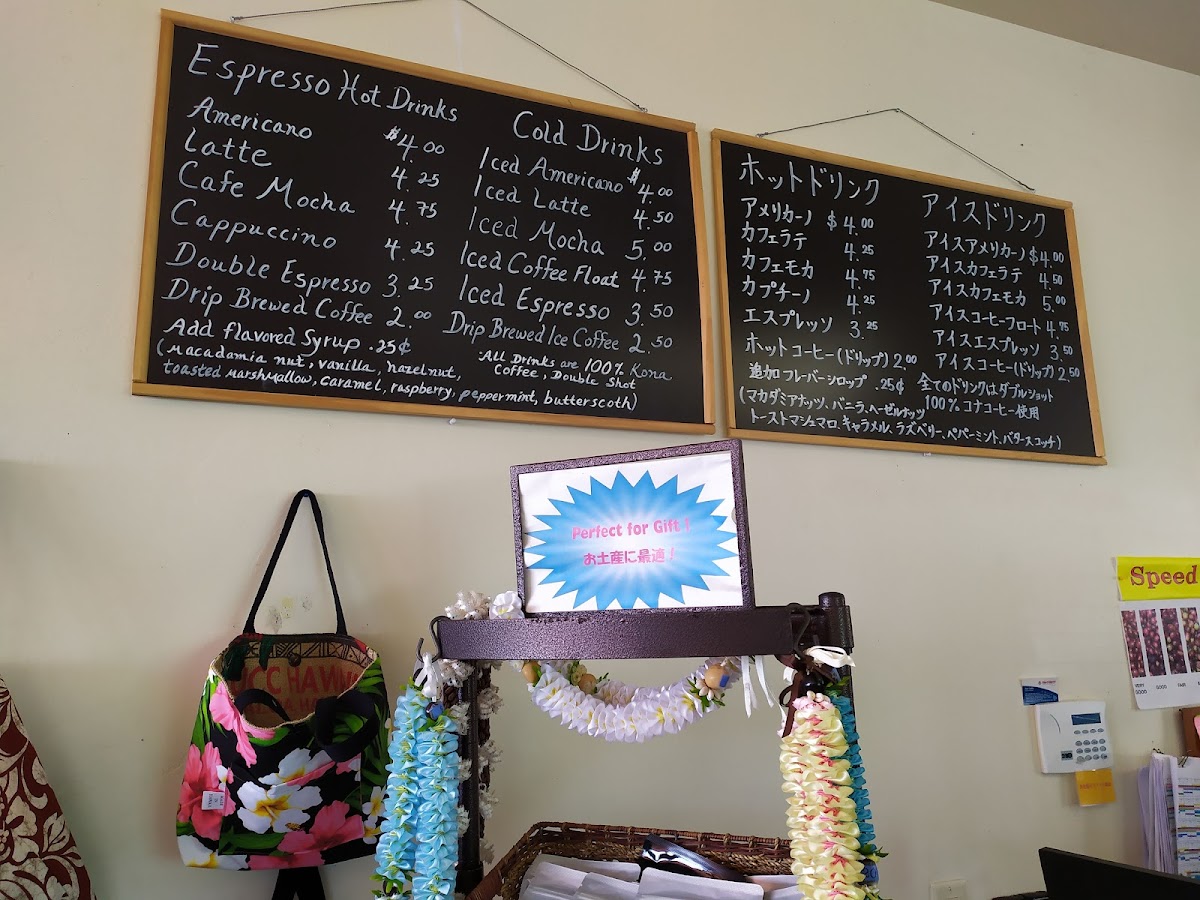 Espresso Hot Drinks
Americano $4.00
Latte 4.25
Cafe Mocha 4.75
Cappuccino 4.25
Double Espresso 3.25
Drip Brewed Coffee 2.00
Add flavored Syrup .25¢
(Macadamia nut, vanilla, hazelnut,
toasted marshmallow, caramel, raspberry, peppermint, butterscotch)
Cold Drinks
Iced Americano $4.00
Iced Latte 4.50
Iced Mocha 5.00
Iced Coffee Float 4.75
Iced Espresso 3.50
Drip Brewed Ice Coffee 2.50
All Drinks are 100% Kona
Coffee, Double Shot
ホットドリンク
アメリカーノ $4.00
カフェラテ 4.25
カフェモカ 4.75
カプチーノ 4.25
エスプレッソ 3.25
ホットコーヒー(ドリップ) 2.00
追加フレーバーシロップ .25¢
(マカダミアナッツ、バニラ、ヘーゼルナッツ
トーストマシュマロ、キャラメル、ラズベリー、ペパーミント、バタースコッチ)
アイスドリンク
アイスアメリカーノ $4.00
アイスカフェラテ 4.50
アイスカフェモカ 5.00
アイスコーヒーフロート 4.75
アイスエスプレッソ 3.50
アイスコーヒー(ドリップ) 2.50
全てのドリンクはダブルショット
100% コナコーヒー使用
Perfect for Gift !
お土産に最適!
Speed